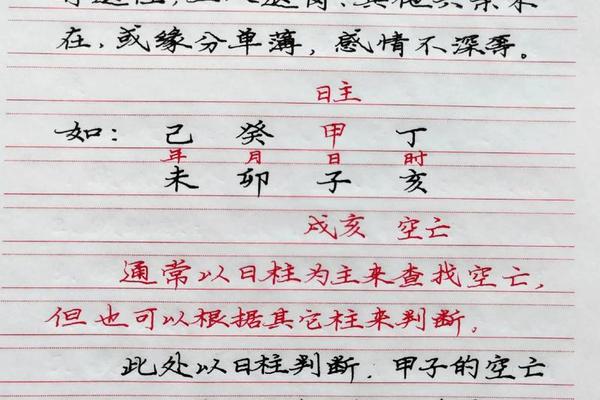 在,或缘分单薄,感情不深等。
日主
如: 己 癸 甲 丁
年 月 日 时
未 卯 子 亥
戌亥 空亡
通常以日柱为主来查找空亡,
但也可以根据其它柱来判断。
此处以日柱判断.甲子的空亡